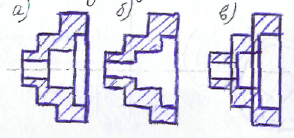 а) б) в)